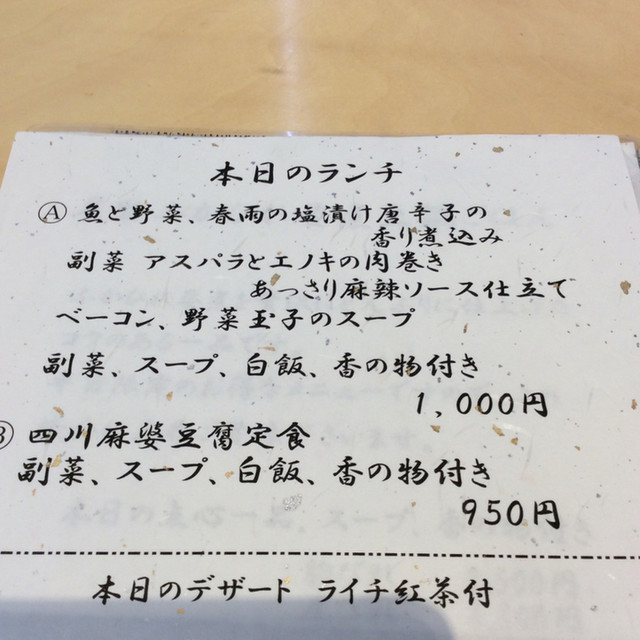 本日のランチ
Ⓐ 魚と野菜、春雨の塩漬け唐辛子の
香り煮込み
副菜 アスパラとエノキの肉巻き
あっさり麻辣ソース仕立て
ベーコン、野菜玉子のスープ
副菜、スープ、白飯、香の物付き
1,000円
Ⓑ 四川麻婆豆腐定食
副菜、スープ、白飯、香の物付き
950円
本日のデザート ライチ紅茶付